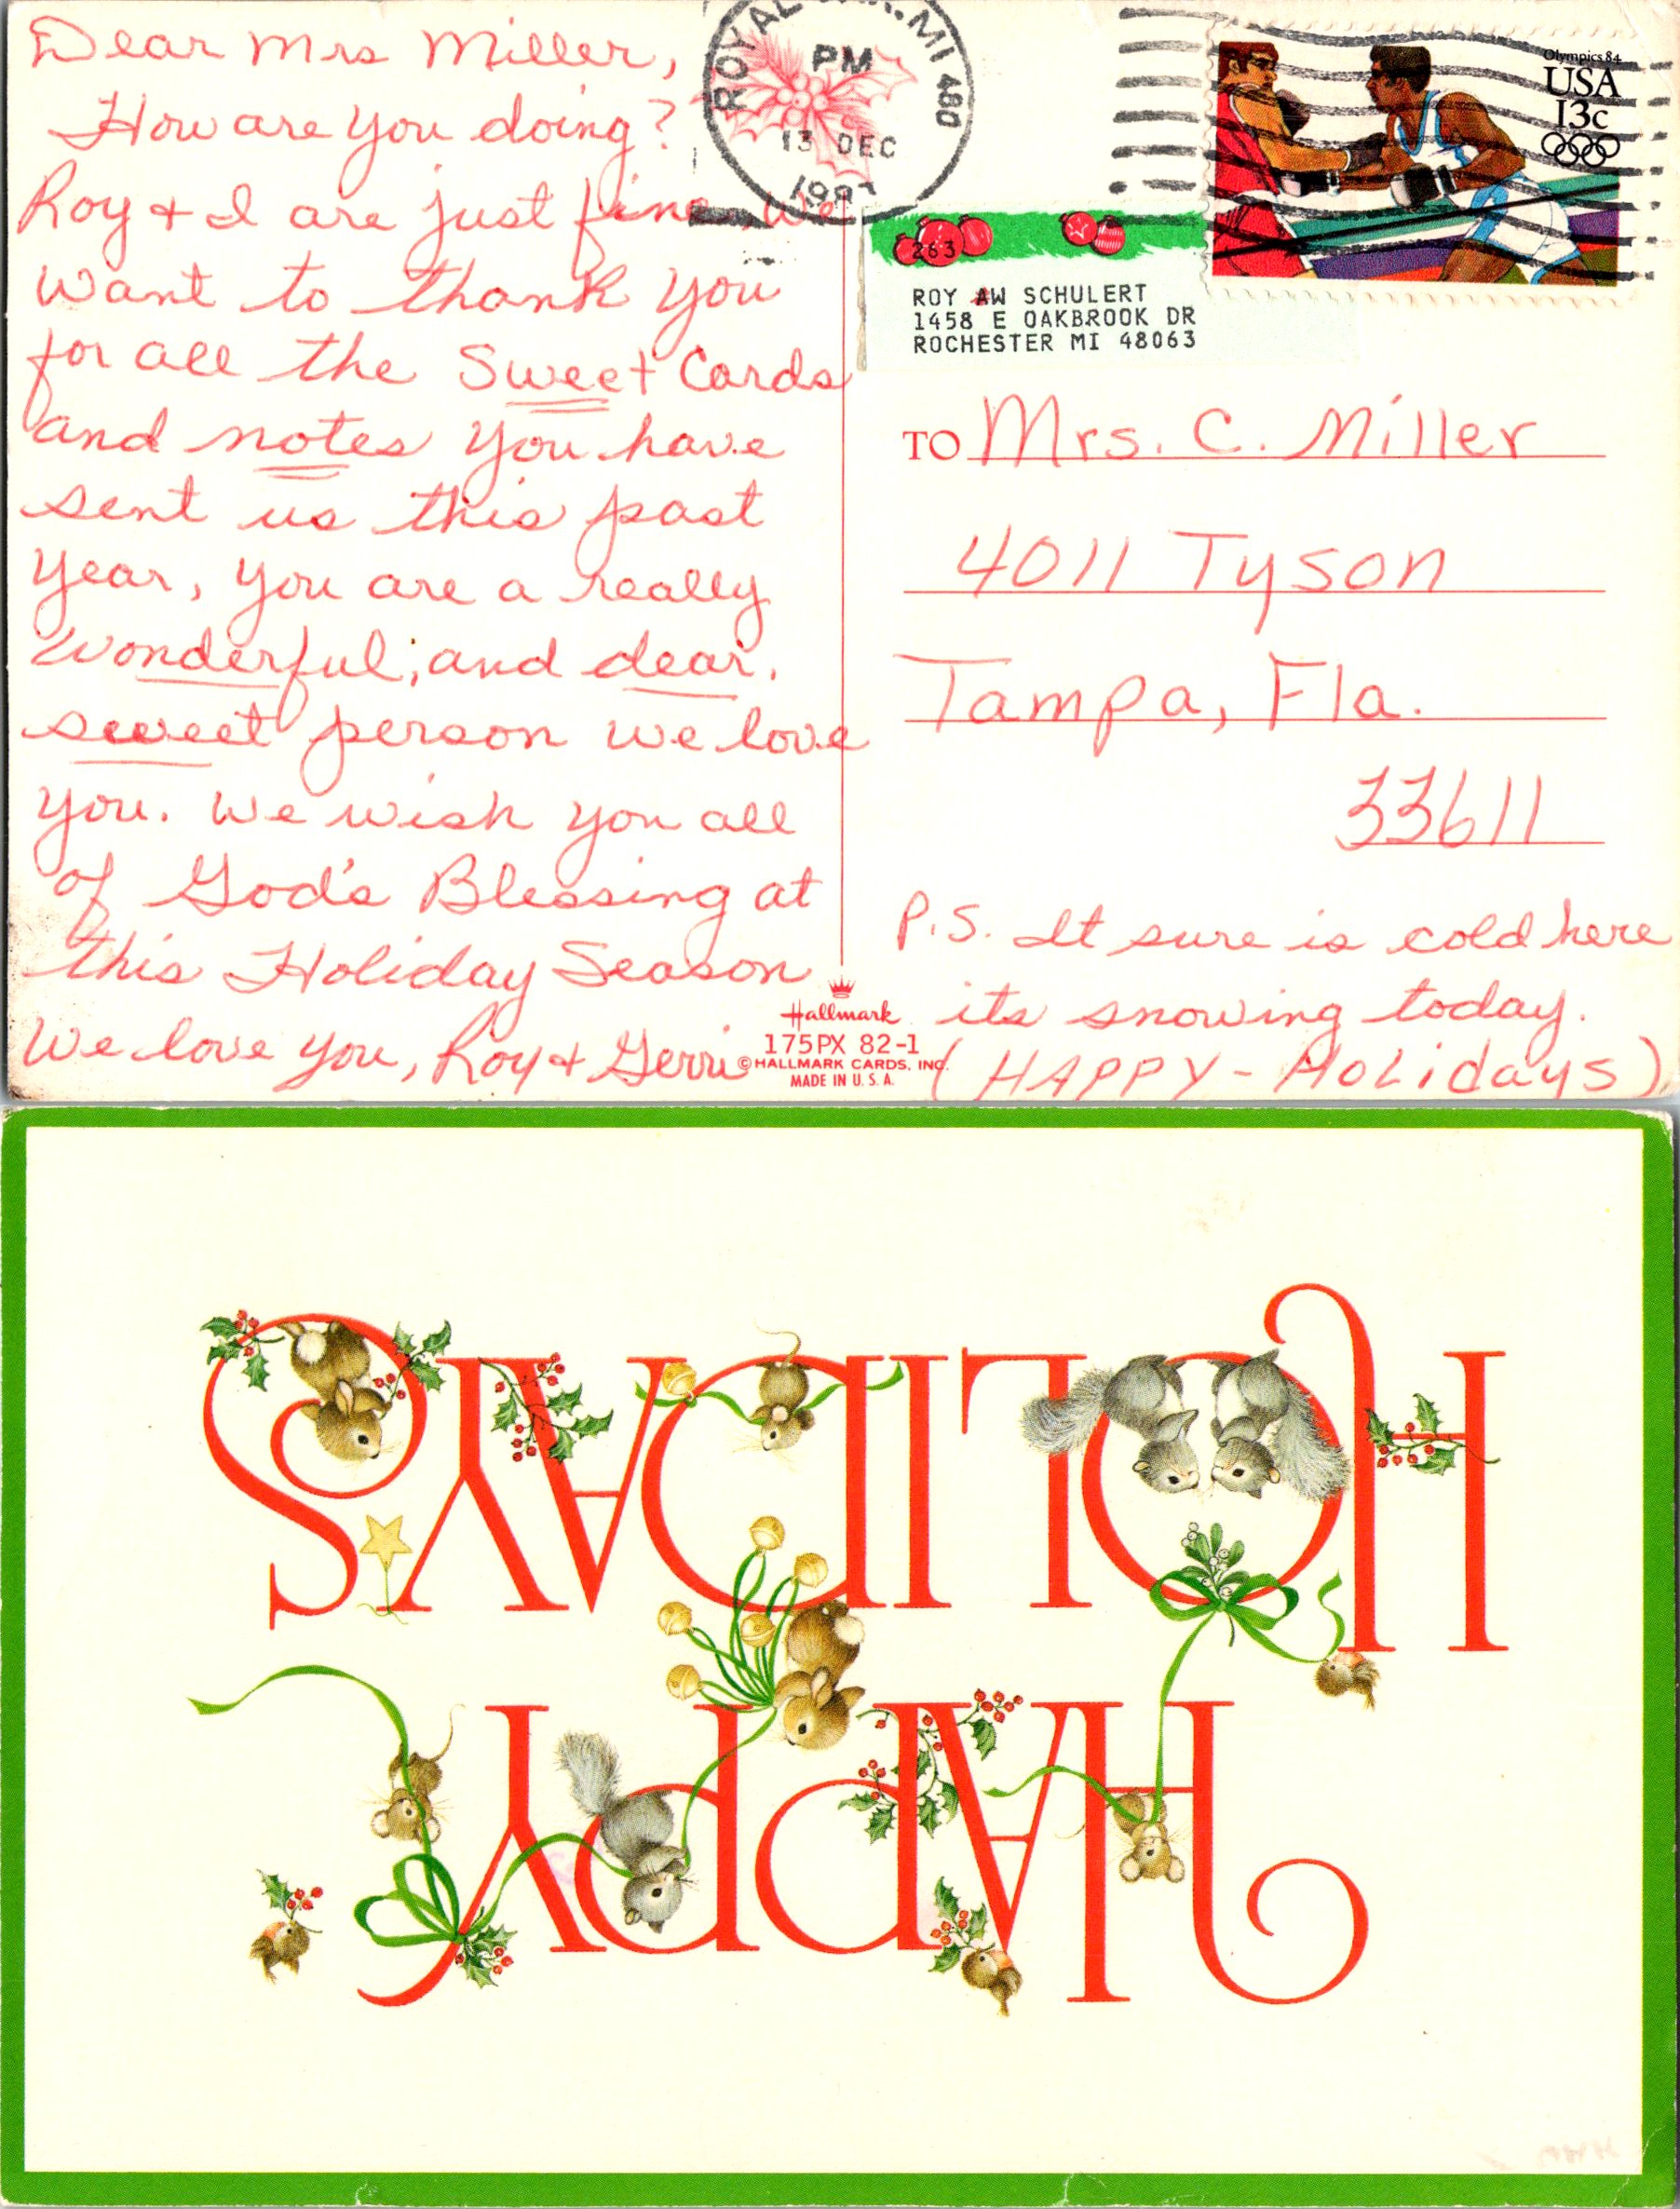 Dear Mrs Miller,
How are you doing?
Roy + I are just fine, we
want to thank you
for all the Sweet Cards
and notes you have
sent us this past
year, you are a really
wonderful, and dear,
sweet person we love
you. We wish you all
of God's Blessing at
this Holiday Season
We love you, Roy + Gerri
ROYAL MI 480
PM
13 DEC
Olympics 84
USA
13c
263
ROY W SCHULERT
1458 E OAKBROOK DR
ROCHESTER MI 48063
TO Mrs. C. Miller
4011 Tyson
Tampa, Fla.
33611
P.S. It sure is cold here
its snowing today.
(HAPPY - HOLidays)
Hallmark
175PX 82-1
© HALLMARK CARDS, INC.
MADE IN U.S.A.
HAPPY
HOLIDAYS